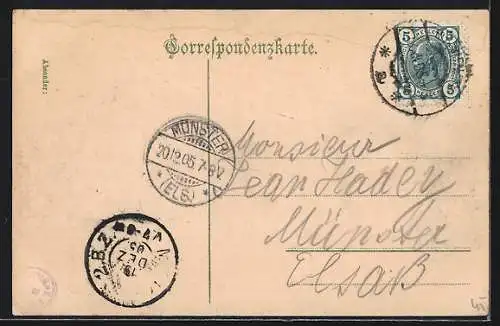 Correspondenzkarte.
Absender:
5 5
5 5
MÜNSTER
20.12.05.7-8V.
* (ELS) *
Monsieur
Jean Hadey
Münster
Elsaß
19
DEZ
05